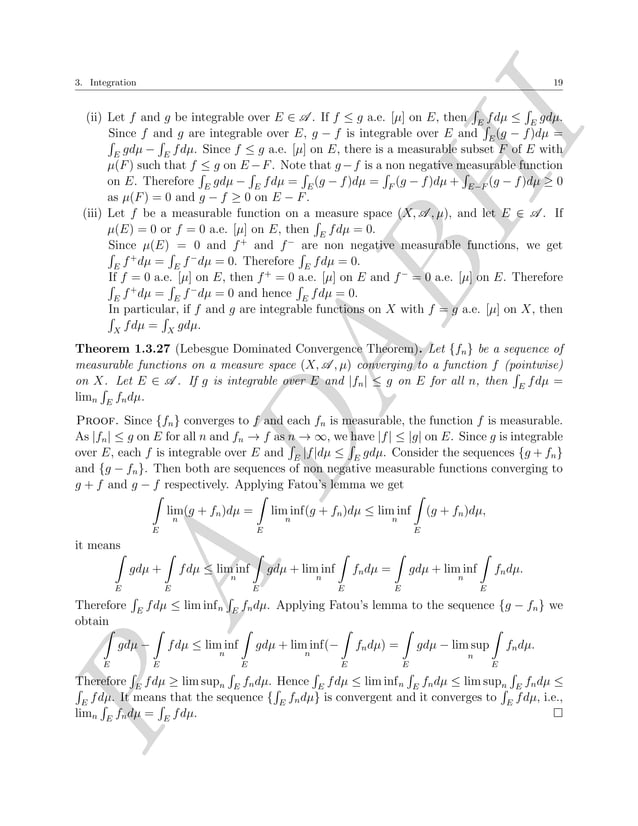 3. Integration 19
(ii) Let f and g be integrable over E ∈ 𝒜. If f ≤ g a.e. [μ] on E, then ∫_E fdμ ≤ ∫_E gdμ.
Since f and g are integrable over E, g − f is integrable over E and ∫_E(g − f)dμ =
∫_E gdμ − ∫_E fdμ. Since f ≤ g a.e. [μ] on E, there is a measurable subset F of E with
μ(F) such that f ≤ g on E − F. Note that g − f is a non negative measurable function
on E. Therefore ∫_E gdμ − ∫_E fdμ = ∫_E(g − f)dμ = ∫_F(g − f)dμ + ∫_{E−F}(g − f)dμ ≥ 0
as μ(F) = 0 and g − f ≥ 0 on E − F.
(iii) Let f be a measurable function on a measure space (X, 𝒜, μ), and let E ∈ 𝒜. If
μ(E) = 0 or f = 0 a.e. [μ] on E, then ∫_E fdμ = 0.
Since μ(E) = 0 and f⁺ and f⁻ are non negative measurable functions, we get
∫_E f⁺dμ = ∫_E f⁻dμ = 0. Therefore ∫_E fdμ = 0.
If f = 0 a.e. [μ] on E, then f⁺ = 0 a.e. [μ] on E and f⁻ = 0 a.e. [μ] on E. Therefore
∫_E f⁺dμ = ∫_E f⁻dμ = 0 and hence ∫_E fdμ = 0.
In particular, if f and g are integrable functions on X with f = g a.e. [μ] on X, then
∫_X fdμ = ∫_X gdμ.
Theorem 1.3.27 (Lebesgue Dominated Convergence Theorem). Let {f_n} be a sequence of
measurable functions on a measure space (X, 𝒜, μ) converging to a function f (pointwise)
on X. Let E ∈ 𝒜. If g is integrable over E and |f_n| ≤ g on E for all n, then ∫_E fdμ =
lim_n ∫_E f_n dμ.
Proof. Since {f_n} converges to f and each f_n is measurable, the function f is measurable.
As |f_n| ≤ g on E for all n and f_n → f as n → ∞, we have |f| ≤ |g| on E. Since g is integrable
over E, each f is integrable over E and ∫_E |f|dμ ≤ ∫_E gdμ. Consider the sequences {g + f_n}
and {g − f_n}. Then both are sequences of non negative measurable functions converging to
g + f and g − f respectively. Applying Fatou's lemma we get
∫_E lim_n(g + f_n)dμ = ∫_E lim inf_n(g + f_n)dμ ≤ lim inf_n ∫_E(g + f_n)dμ,
it means
∫_E gdμ + ∫_E fdμ ≤ lim inf_n ∫_E gdμ + lim inf_n ∫_E f_n dμ = ∫_E gdμ + lim inf_n ∫_E f_n dμ.
Therefore ∫_E fdμ ≤ lim inf_n ∫_E f_n dμ. Applying Fatou's lemma to the sequence {g − f_n} we
obtain
∫_E gdμ − ∫_E fdμ ≤ lim inf_n ∫_E gdμ + lim inf_n(−∫_E f_n dμ) = ∫_E gdμ − lim sup_n ∫_E f_n dμ.
Therefore ∫_E fdμ ≥ lim sup_n ∫_E f_n dμ. Hence ∫_E fdμ ≤ lim inf_n ∫_E f_n dμ ≤ lim sup_n ∫_E f_n dμ ≤
∫_E fdμ. It means that the sequence {∫_E f_n dμ} is convergent and it converges to ∫_E fdμ, i.e.,
lim_n ∫_E f_n dμ = ∫_E fdμ. □
P A DABHI